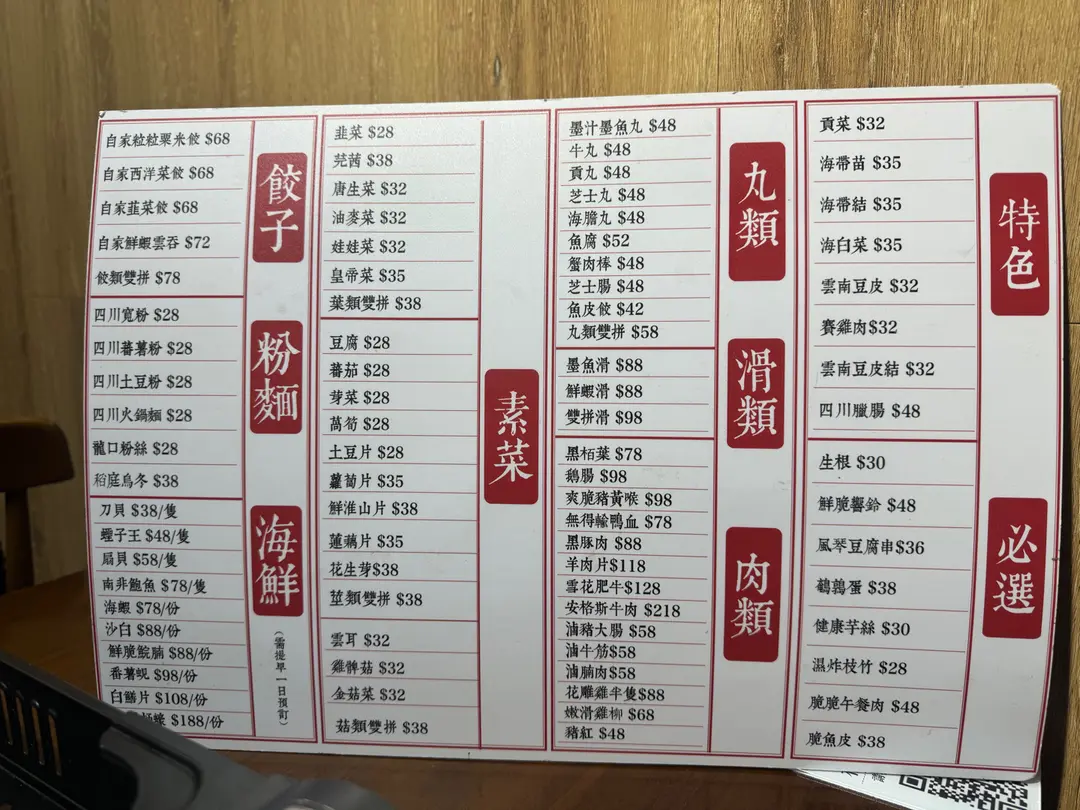 自家粒粒粟米餃 $68
自家西洋菜餃 $68
自家韮菜餃 $68
自家鮮蝦雲吞 $72
餃類雙拼 $78
餃子
四川寬粉 $28
四川蕃薯粉 $28
四川土豆粉 $28
四川火鍋麵 $28
龍口粉絲 $28
稻庭烏冬 $38
粉麵
刀貝 $38/隻
蟶子王 $48/隻
扇貝 $58/隻
南非鮑魚 $78/隻
海蝦 $78/份
沙白 $88/份
鮮脆鯇腩 $88/份
番薯蜆 $98/份
白鱔片 $108/份
$188/份
海鮮
(需提早一日預訂)
韮菜 $28
芫茜 $38
唐生菜 $32
油麥菜 $32
娃娃菜 $32
皇帝菜 $35
葉類雙拼 $38
豆腐 $28
蕃茄 $28
芽菜 $28
萵筍 $28
土豆片 $28
蘿蔔片 $35
鮮淮山片 $38
蓮藕片 $35
花生芽$38
莖類雙拼 $38
雲耳 $32
雞髀菇 $32
金菇菜 $32
菇類雙拼 $38
素菜
墨汁墨魚丸 $48
牛丸 $48
貢丸 $48
芝士丸 $48
海膽丸 $48
魚腐 $52
蟹肉棒 $48
芝士腸 $48
魚皮餃 $42
丸類雙拼 $58
丸類
墨魚滑 $88
鮮蝦滑 $88
雙拼滑 $98
滑類
黑栢葉 $78
鵝腸 $98
爽脆豬黃喉 $98
無得輸鴨血 $78
黑豚肉 $88
羊肉片$118
雪花肥牛$128
安格斯牛肉 $218
滷豬大腸 $58
滷牛筋$58
滷腩肉$58
花雕雞半隻$88
嫩滑雞柳 $68
豬紅 $48
肉類
貢菜 $32
海帶苗 $35
海帶結 $35
海白菜 $35
雲南豆皮 $32
賽雞肉$32
雲南豆皮結 $32
四川臘腸 $48
特色
生根 $30
鮮脆響鈴 $48
風琴豆腐串$36
鵪鶉蛋 $38
健康芋絲 $30
濕炸枝竹 $28
脆脆午餐肉 $48
脆魚皮 $38
必選